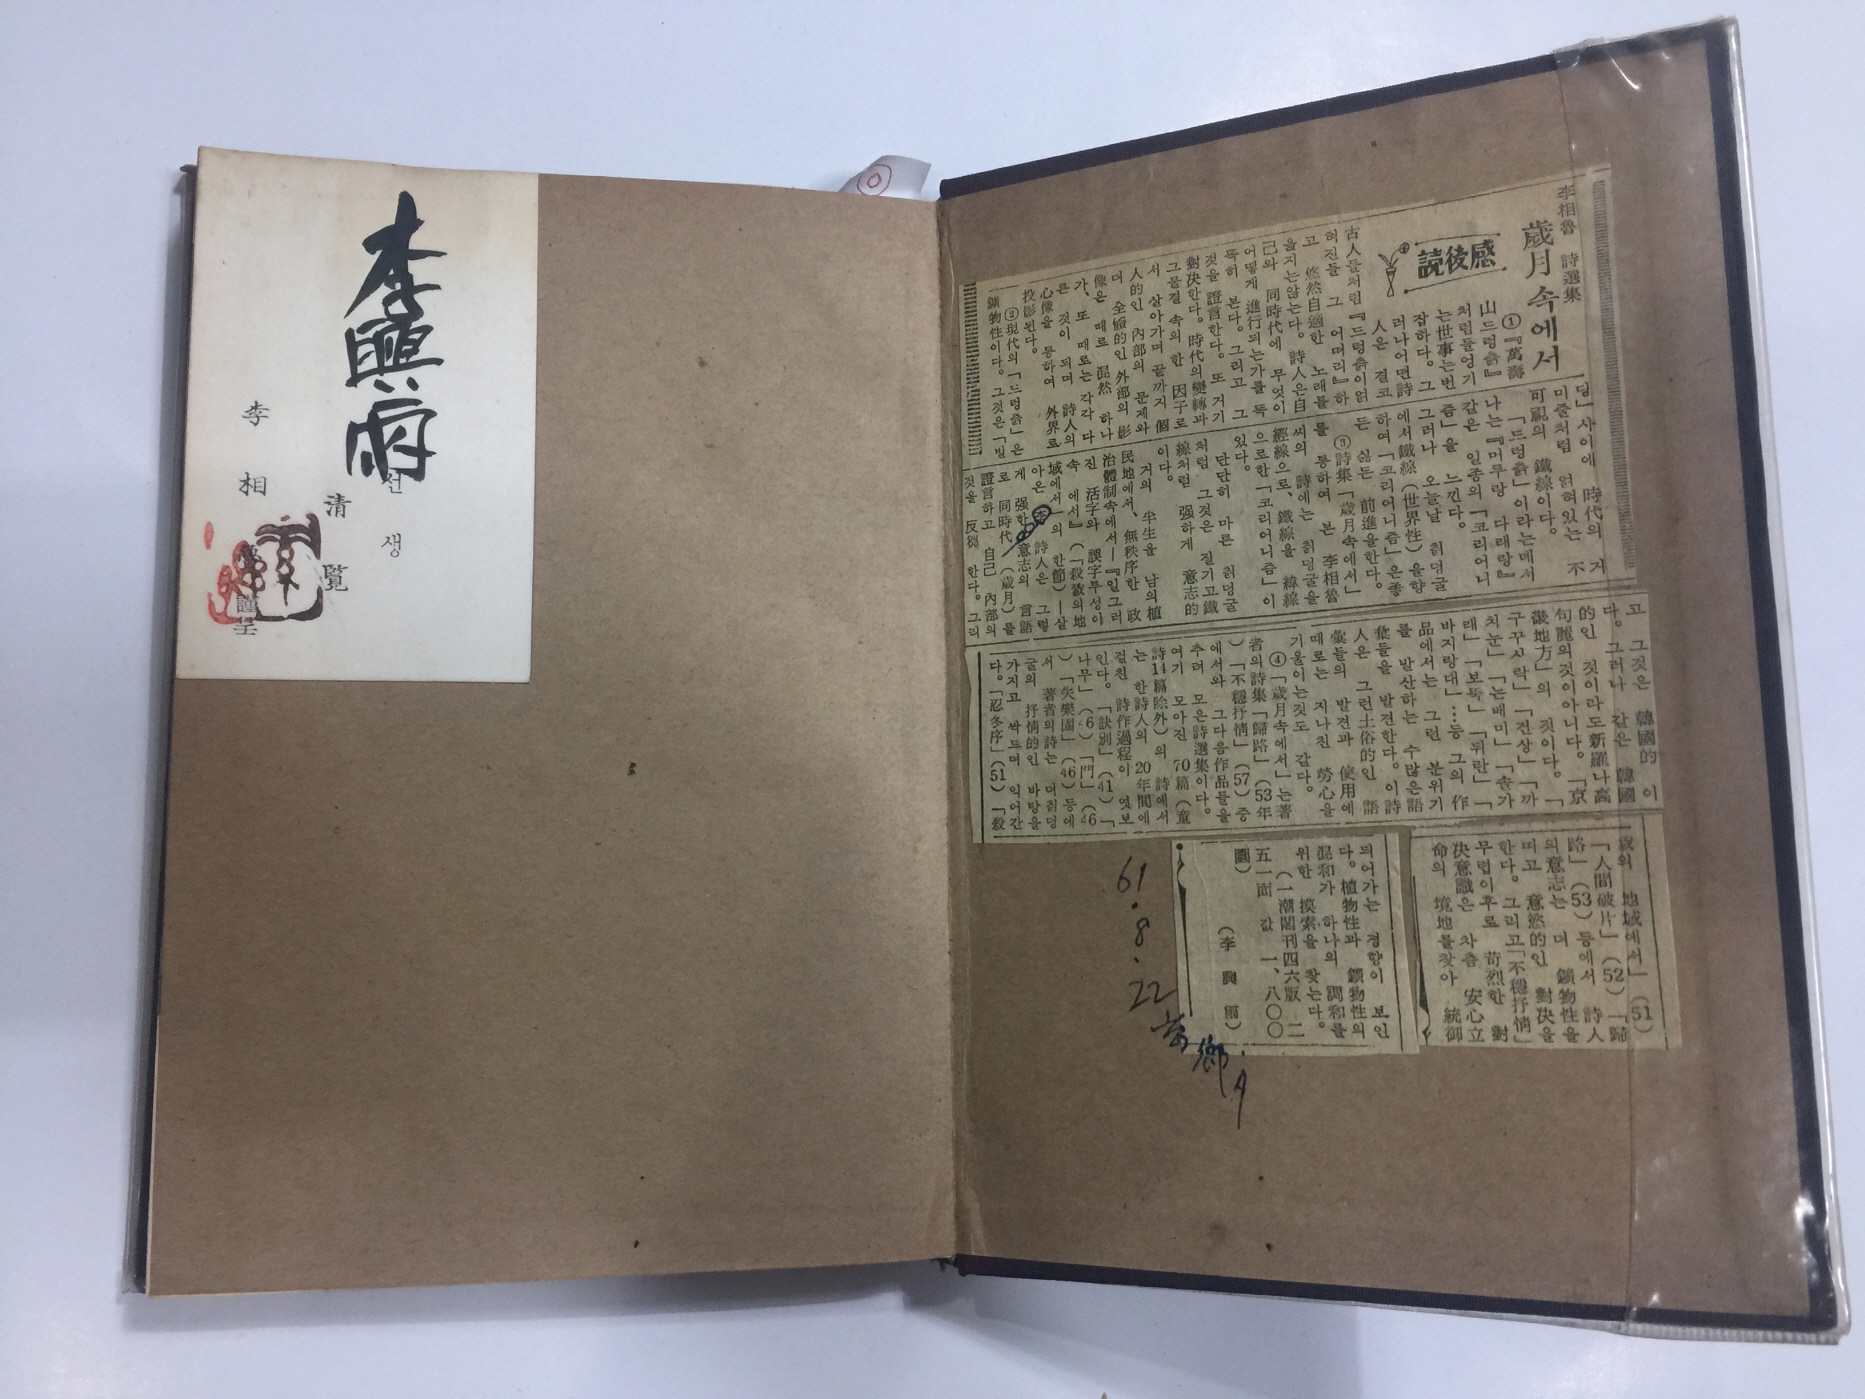 李興雨
선생
清覽
李相魯 謹呈
李相魯 詩選集
歲月 속에서
読後感
①『萬壽
山드렁츩』
처럼들엉기
는世事는번
잡하다。그
러나어면詩
人은 결코
古人들처럼『드렁츩이얽
혀진들 그 어떠리』하
고 悠然自適한 노래를
읊지는않는다。詩人은自
己와 同時代에 무엇이
어떻게 進行되는가를 똑
똑히 본다。그리고 그
것을 證言한다。또 거기
對決한다。時代의變轉과
그물결 속의 한 因子로
서 살아가며 끝까지 個
人的인 內部의 문제와
더 全的인 外部의 影
像은 때로 混然 하나
가、또 때로는 각각 다
른 것이 되며 詩人의
心像을 통하여 外界로
投影된다。
②現代의「드렁츩」은
鑛物性이다。그것은「빌
딩」사이에 時代의 거
미줄처럼 얽혀있는 不
可視의 鐵線이다。
「드렁츩」이라는데서
나는『머루랑 다래랑』
같은 일종의「코리어니
즘」을 느낀다。
그러나 오늘날 츩덩굴
에서鐵線(世界性)을향
하여「코리어니즘」은좋
든 싫든 前進을한다。
③詩集「歲月속에서」
를 통하여 본 李相魯
씨의 詩에는 츩덩굴을
經線으로、鐵線을 緯線
으로한「코리어니즘」이
있다。
단단히 마른 츩덩굴
처럼 그것은 질기고鐵
線처럼 强하게 意志的
이다。
거의 半生을 남의植
民地에서、無秩序한 政
治體制속에서―『일그러
진 活字와 誤字투성이
속에서』(「殺戮의地
域에서」의 한節)―살
아온 本 詩人은 그렇
게 强한 意志의 言語
로 同時代(歲月)를
證言하고 自己 內部의
것을 反芻 한다。그리
고 그것은 韓國的 이
다。그러나 같은 韓國
的인 것이라도新羅나高
句麗의것이아니다。「京
畿地方」의 것이다。「
구꾸시락」「건상」「까
치눈」「논배미」「솔가
래」「보둑」「뒤란」「
바지랑대」…등 그의 作
品에서는 그런 분위기
를 발산하는 수많은語
彙들을 발견한다。이詩
人은 그런土俗的인 語
彙들의 발견과 使用에
때로는 지나친 勞心을
기울이는것도 같다。
④「歲月속에서」는著
者의詩集「歸路」(53年
)「不穩抒情」(57)중
에서와 그다음作品들을
추려 모은詩選集이다。
여기 모아진 70篇(童
詩14篇除外)의 詩에서
는 한詩人의 20年間에
걸친 詩作過程이 엿보
인다。「訣別」(41)「
나무」(46)「門」(46
)「失樂園」(46)등에
서 著者의詩는 더츩덩
굴의 抒情的인 바탕을
가지고 싹트며 익어간
다。「忍冬序」(51)「殺
戮의 地域에서」(51)
「人間破片」(52)「歸
路」(53)등에서 詩人
의意志는 더 鑛物性을
띠고 意慾的인 對決을
한다。그리고「不穩抒情」
무렵이후로 苛烈한 對
決意識은 차츰 安心立
命의 境地를찾아 統御
되어가는 경향이 보인
다。植物性과 鑛物性의
混和가 하나의 調和를
위한 摸索을 찾는다。
(一潮閣刊四六版 二
五一面 값 一、八〇〇
圜)
(李興雨)
61.8.22
京鄕